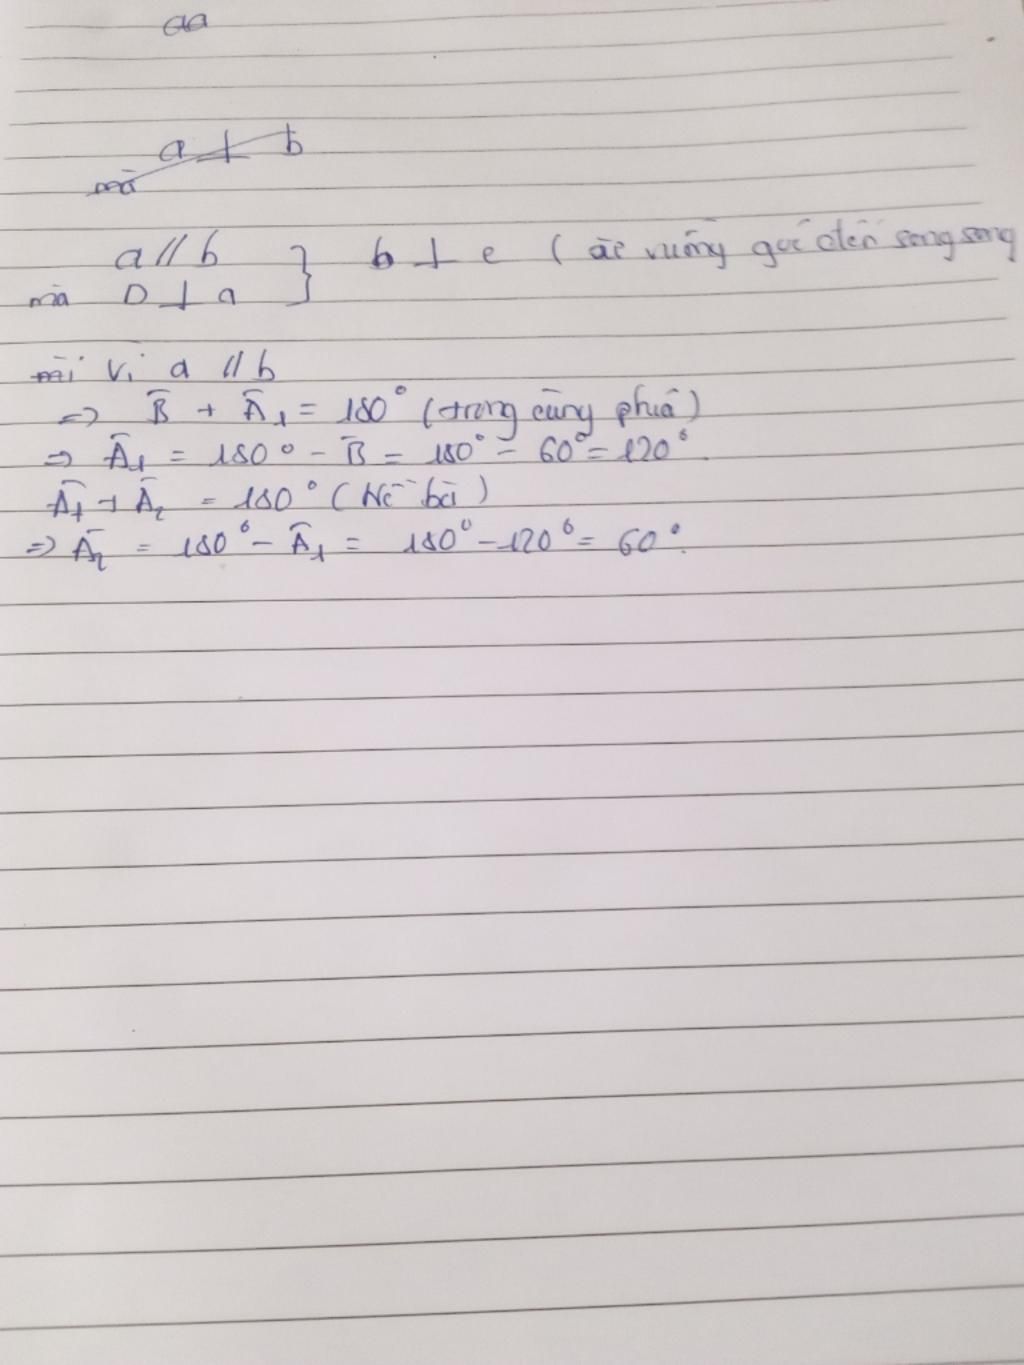 aa
a ⊥ b
mà
a // b } b ⊥ c ( từ vuông góc đến song song
mà D ⊥ a
Vì a // b
=> B̂ + Â₁ = 180° (trong cùng phía)
=> Â₁ = 180° - B̂ = 180° - 60° = 120°.
Â₁ + Â₂ = 180° (kề bù)
=> Â₂ = 180° - Â₁ = 180° - 120° = 60°.